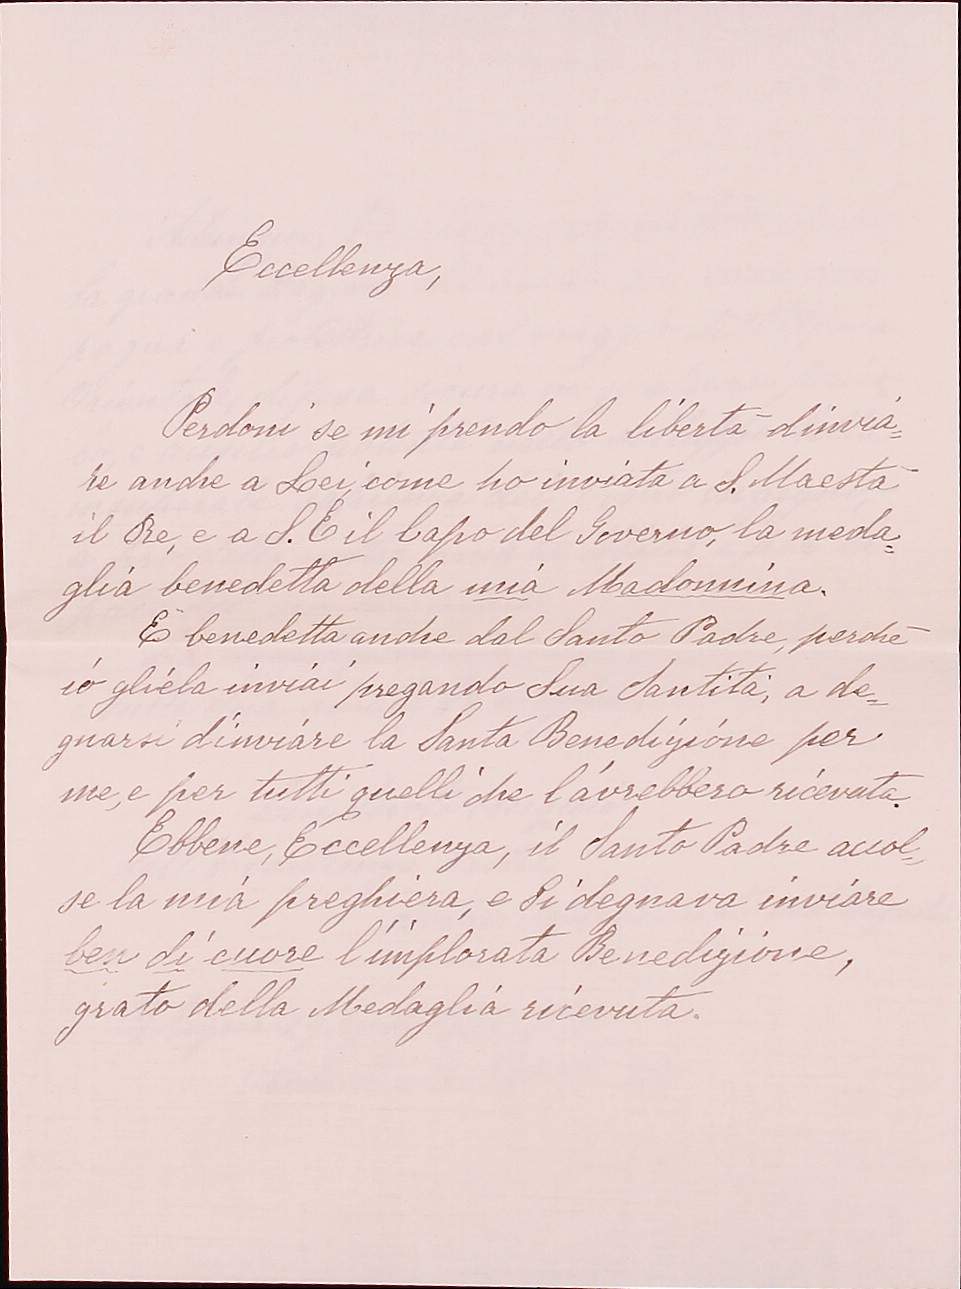 Eccellenza,
Perdoni se mi prendo la libertà d'invia=
re anche a Lei, come ho inviata a S. Maestà
il Re, e a S. E il Capo del Governo, la meda=
glia benedetta della mia Madonnina.
È benedetta anche dal Santo Padre, perchè
io gliela inviai pregando Sua Santità, a de=
gnarsi d'inviare la Santa Benedizione per
me, e per tutti quelli che l'avrebbero ricevuta.
Ebbene, Eccellenza, il Santo Padre accol=
se la mia preghiera, e Si degnava inviare
ben di cuore l'implorata Benedizione,
grato della Medaglia ricevuta.